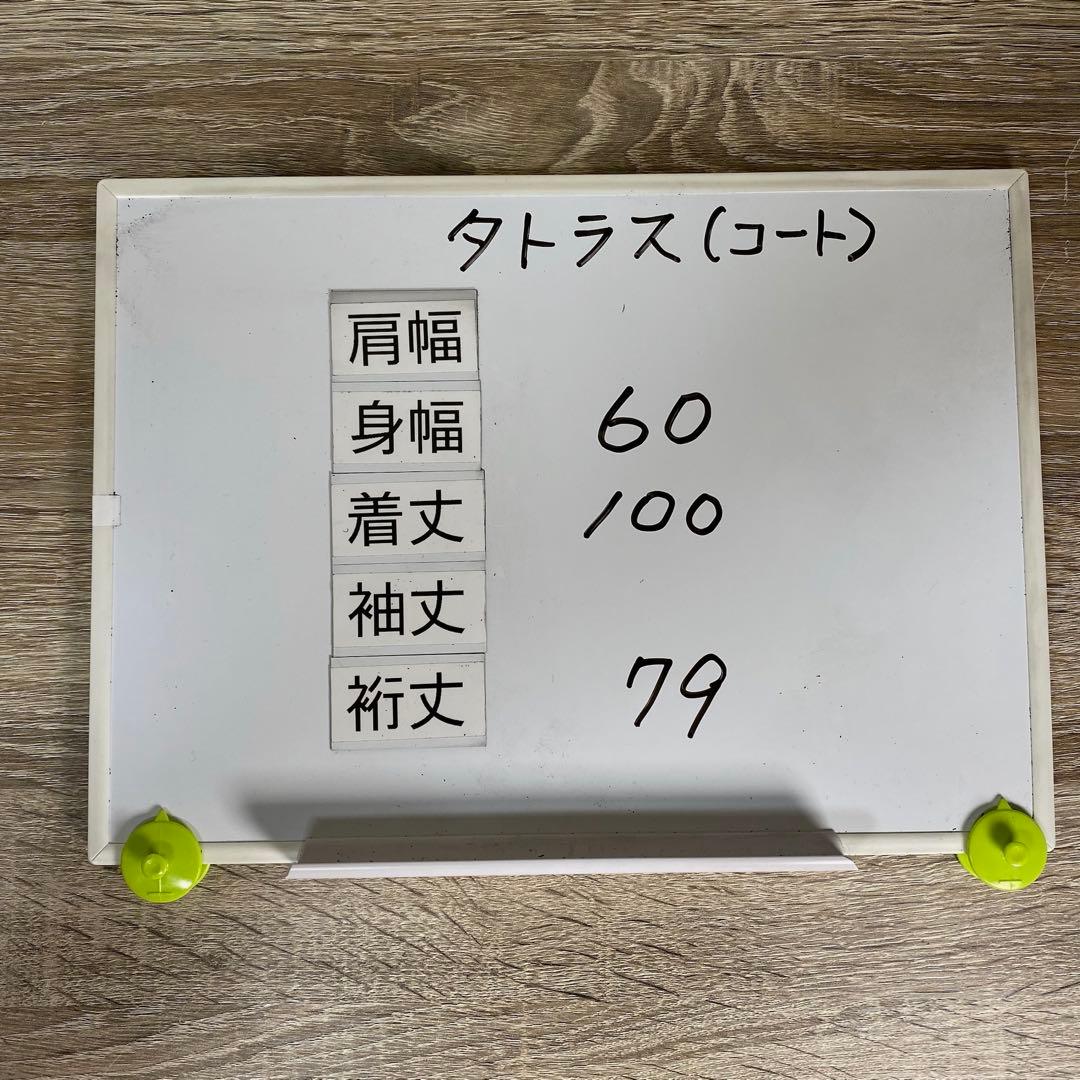 タトラス(コート)
肩幅
身幅 60
着丈 100
袖丈
裄丈 79